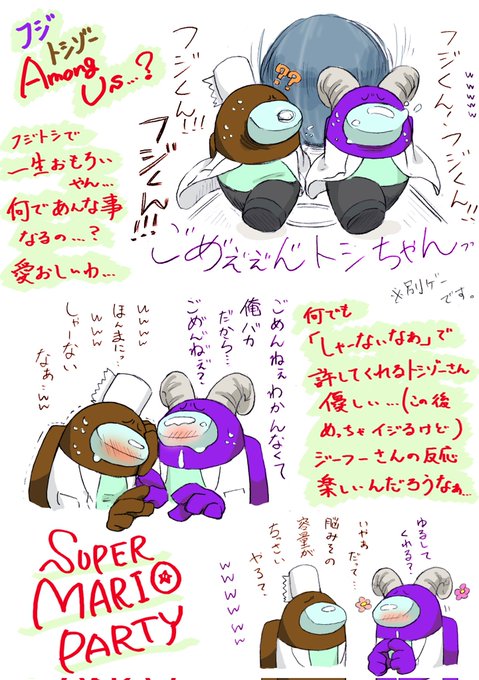 フジ
トシゾー
Among
Us...?
フジトシで
一生おもろい
やん...
何であんな事
なるの...?
愛おしいわ...
フジくん!フジくん!!
wwwww
??
フジくん!!
フジくん!!!
ごめぇぇんトシちゃんッ
※別ゲーです。
ごめんねぇわかんなくて
俺バカ
だから...
ごめんねぇ?
www
ほんまに...
www
しゃーない
なぁ...ww
何でも
「しゃーないなぁ」で
許してくれるトシゾーさん
優しい...(この後
めっちゃイジるけど)
ジーフーさんの反応
楽しいんだろうなぁ...
SUPER
MARIO
PARTY
ゆるして
くれる?
いやぁ
だって...
脳みその
容量が
ちっさい
やろ?
wwwww